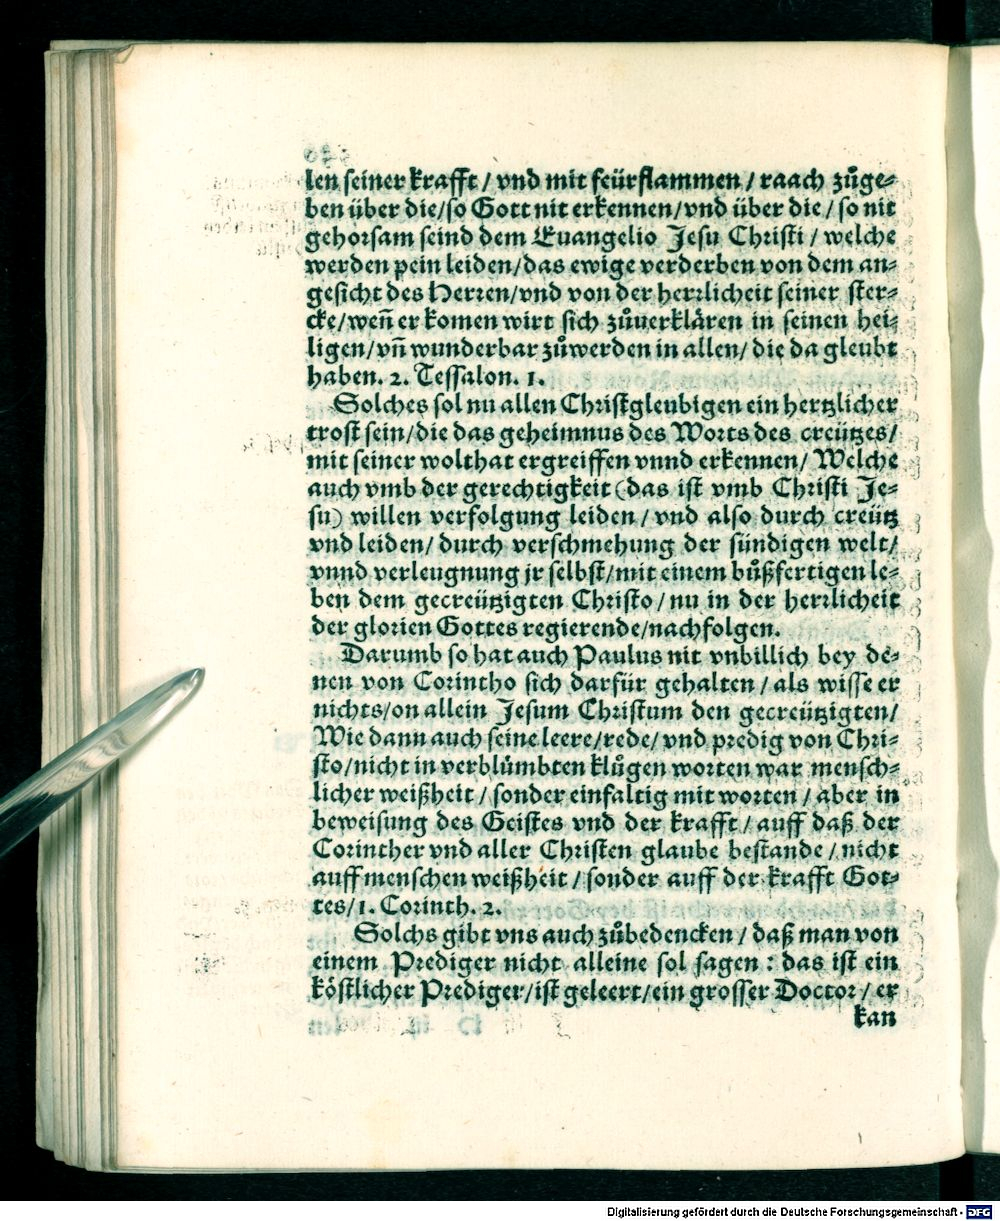 len seiner krafft / vnd mit feürflammen / raach zůge-
ben über die/so Gott nit erkennen/vnd über die / so nit
gehorsam seind dem Euangelio Jesu Christi / welche
werden pein leiden/das ewige verderben von dem an-
gesicht des Herren/vnd von der herrlicheit seiner ster-
cke/weñ er komen wirt sich zůuerklären in seinen hei-
ligen/vñ wunderbar zůwerden in allen/ die da gleubt
haben. 2. Tessalon. 1.
Solches sol nu allen Christgleubigen ein hertzlicher
trost sein/die das geheimnus des Worts des creützes/
mit seiner wolthat ergreiffen vnnd erkennen/ Welche
auch vmb der gerechtigkeit (das ist vmb Christi Je-
su) willen verfolgung leiden / vnd also durch creütz
vnd leiden/ durch verschmehung der sündigen welt/
vnnd verleugnung jr selbst/mit einem bůßfertigen le-
ben dem gecreützigten Christo / nu in der herrlicheit
der glorien Gottes regierende/nachfolgen.
Darumb so hat auch Paulus nit vnbillich bey de-
nen von Corintho sich darfür gehalten / als wisse er
nichts/on allein Jesum Christum den gecreützigten/
Wie dann auch seine leere/rede/ vnd predig von Chri-
sto/nicht in verblümbten klůgen worten war mensch-
licher weißheit / sonder einfaltig mit worten / aber in
beweisung des Geistes vnd der krafft / auff daß der
Corinther vnd aller Christen glaube bestande / nicht
auff menschen weißheit / sonder auff der krafft Got-
tes/1. Corinth. 2.
Solchs gibt vns auch zůbedencken / daß man von
einem Prediger nicht alleine sol sagen : das ist ein
köstlicher Prediger/ist geleert/ein grosser Doctor / er
kan
Digitalisierung gefördert durch die Deutsche Forschungsgemeinschaft - DFG